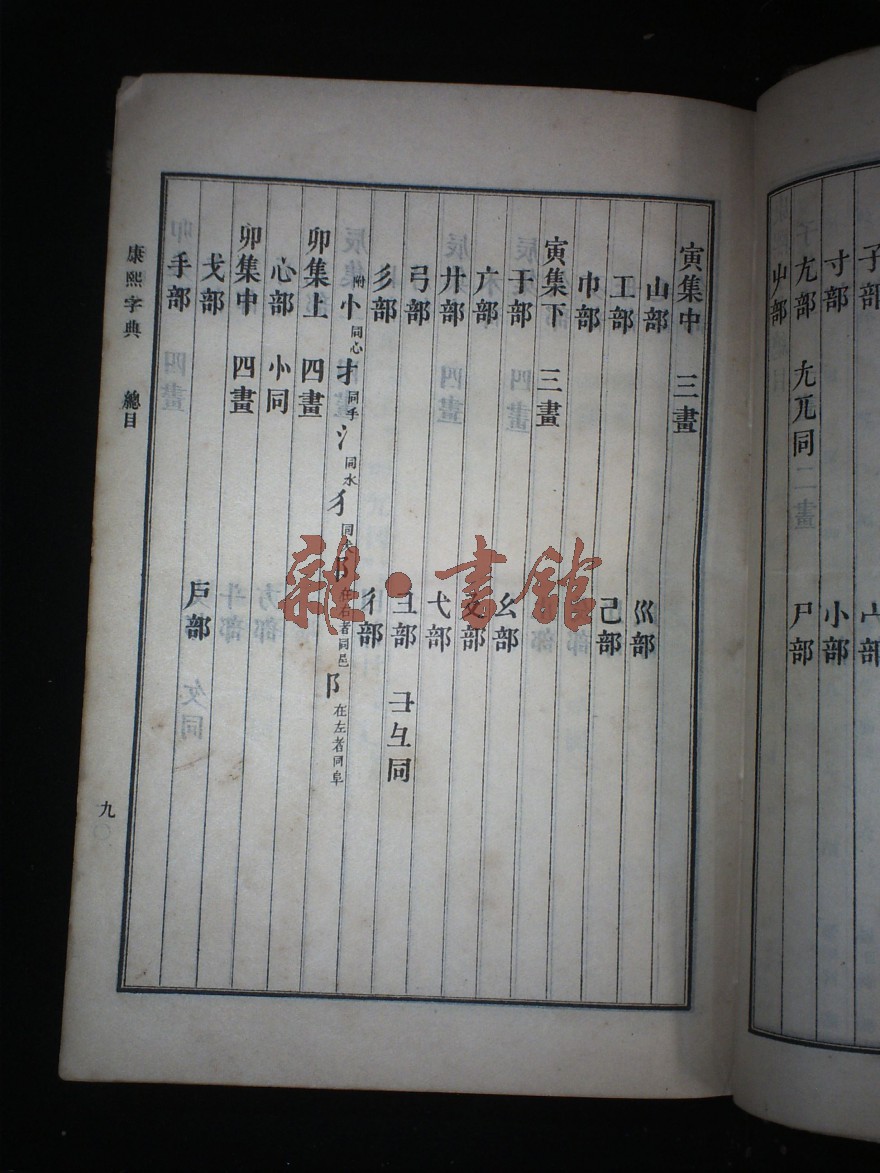 子部 宀部
寸部 小部
尢部 尣兀同 尸部
屮部
寅集中 三畫
山部 巛部
工部 己部
巾部
寅集下 三畫
干部 幺部
广部 廴部
廾部 弋部
弓部 彐部 彐彑同
彡部 彳部
附 忄同心 扌同手 氵同水 犭同犬 阝在右者同邑 阝在左者同阜
卯集上 四畫
心部 㣺同
卯集中 四畫
戈部 戶部
手部
康熙字典 總目
九
雜·書館